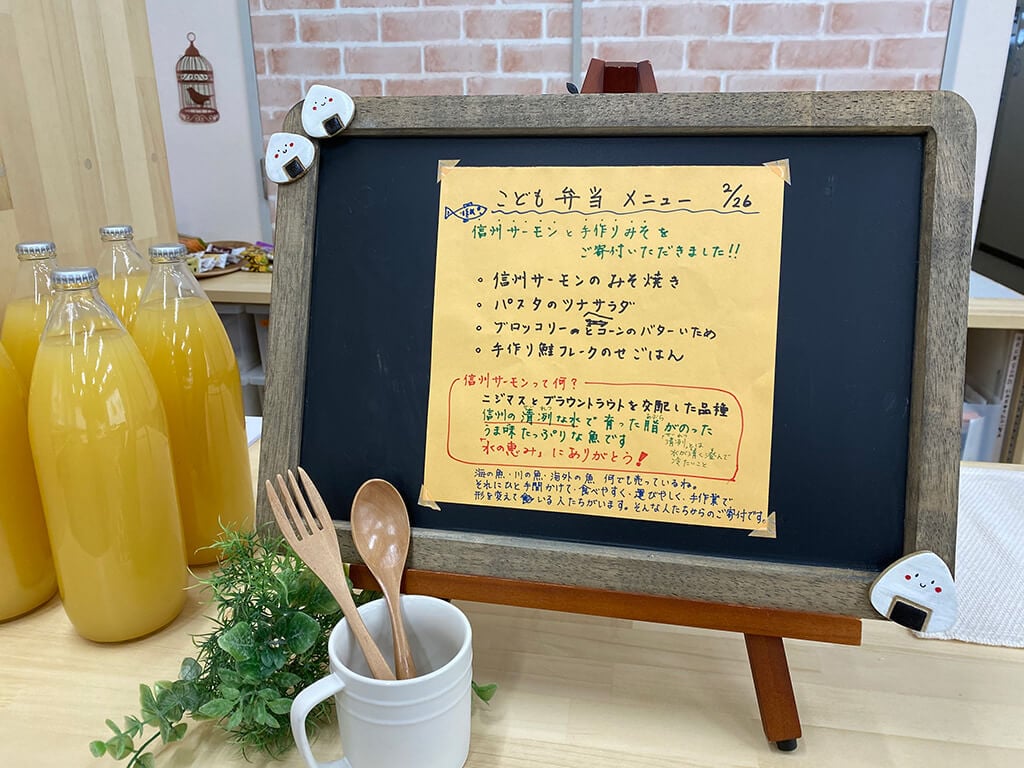 こども弁当 メニュー 2/26
信州サーモンと手作りみそを
ご寄付いただきました!!
◦ 信州サーモンのみそ焼き
◦ パスタのツナサラダ
◦ ブロッコリーとコーンのバターいため
◦ 手作り鮭フレークのせごはん
信州サーモンって何?
ニジマスとブラウントラウトを交配した品種
信州の清冽な水で育った脂がのった
うま味たっぷりな魚です
「清冽」とは
水が清く澄んで
冷たいこと
「水の恵み」にありがとう!
海の魚・川の魚・海外の魚 何でも売っているね。
それにひと手間かけて・食べやすく・運びやしく・手作業で
形を変えている人たちがいます。そんな人たちからのご寄付です。